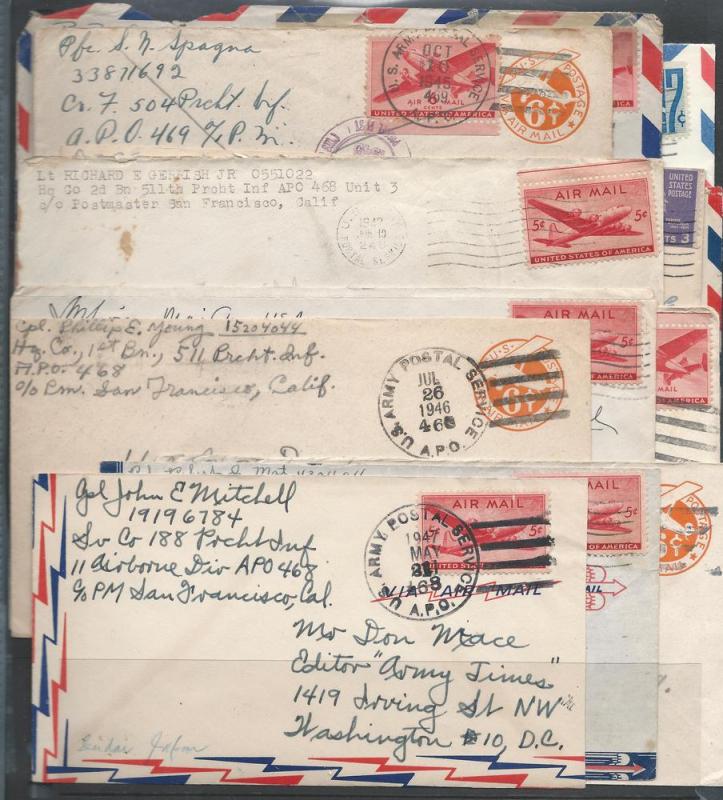 Pfc. S. N. Spagna
33871692
Co. F. 504 Prcht. Inf.
A.P.O. 469 % P.M.
U.S. ARMY POSTAL SERVICE
OCT
1945
469
A.P.O.
AIR MAIL
6
CENTS
U.S. POSTAGE
6¢
AIR MAIL
7
UNITED STATES
POSTAGE
CENTS 3
Lt RICHARD E GERRISH JR 0551022
Hq Co 2d Bn 511th Prcht Inf APO 468 Unit 3
c/o Postmaster San Francisco, Calif
AIR MAIL
5¢ 5¢
UNITED STATES OF AMERICA
5¢
OF AMERICA
MAIL
Cpl. Phillip E. Young 15204044
Hq. Co., 1st Bn., 511 Prcht. Inf.
A.P.O. 468
c/o P.m. San Francisco, Calif.
U.S. ARMY POSTAL SERVICE
JUL
26
1946
468
A.P.O.
U.S. POSTAGE
6¢
AIR MAIL
Cpl John E Mitchell
19196784
Sv Co 188 Prcht Inf
11 Airborne Div APO 468
c/o PM San Francisco, Cal.
U.S. ARMY POSTAL SERVICE
1947
MAY
468
A.P.O.
AIR MAIL
5¢
UNITED STATES
VIA AIR MAIL
5¢
OF AMERICA
POSTAGE
6¢
Mr Don Mace
Editor "Army Times"
1419 Irving St NW
Washington 10, D.C.